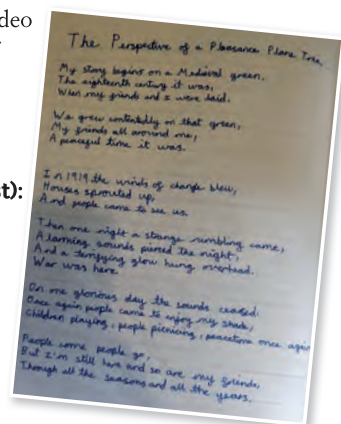 deo
st):
The Perspective of a Pleasance Plane Tree
My story begins on a Medieval green,
The eighteenth century it was,
When my friends and I were laid.
We grew contentedly on that green,
My friends all around me,
A peaceful time it was.
In 1919 the winds of change blew,
Houses sprouted up,
And people came to see us.
Then one night a strange rumbling came,
Alarming sounds pierced the night,
And a terrifying glow hung overhead.
War was here.
On one glorious day the sounds ceased.
Once again people came to enjoy my shade,
Children playing, people picnicing, peacetime once again
People come people go,
But I'm still here and so are my friends,
Through all the seasons and all the years.